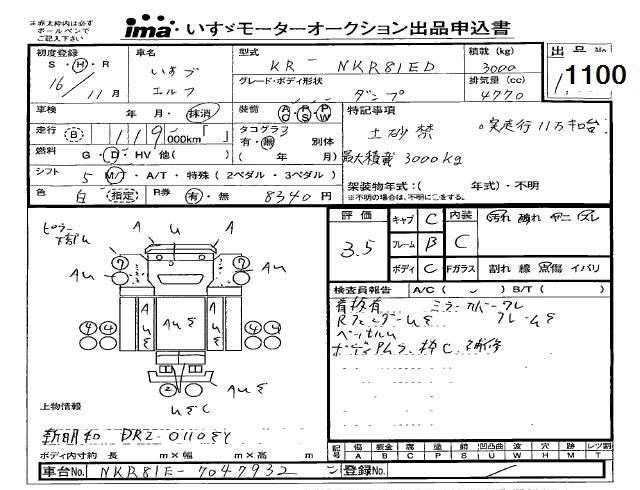 ※赤太枠内は必ず
ボールペンで
ご記入下さい
ima いすゞモーターオークション出品申込書
初度登録 車名 型式 積載 (kg) 出品No.
S・H・R いすゞ KR- NKR81ED 3000 1100
16/11月 エルフ グレード・ボディ形状 排気量 (cc)
ダンプ 4770
車検 年 月・抹消 装備 AC PS PW 特記事項
走行 B 119,000km「 」 タコグラフ 土砂禁 実走行11万キロ台
有・無 別体
燃料 G・D・HV 他( ) ( 年 月) 最大積載3000kg
シフト 5 M/T・A/T・特殊(2ペダル・3ペダル) 架装物年式:( 年式)・不明
色 白 指定 R券 有・無 8340円 ※不明の場合は、不明に○をする。
評価 キャブ C 内装 汚れ 破れ ヤニ スレ
3.5 フレーム B C
ボディ C Fガラス 割れ 線 点傷 イバリ
ピラー
下部U
A U A
7 7
AU AU
A A
4 4 AUS 4 4
US US
2
AUS
USC
検査員報告 A/C ( ) B/T ( )
看板有 ミラーカバーワレ
RフェンダーUS フレームS
ボディアムラ、枠C、補修
上物情報
新明和 DR2-0110SY
ボディ内寸約 長 m×幅 m×高 m
記号 傷 板金 腐 塗 錆 凹凸曲 波 穴 跡 レツ割
A B C P S U W H M T
車台No. NKR81E-7047932 登録No.